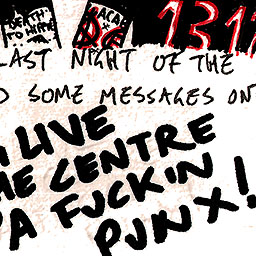 DEATH
TO WHITE
ACAB
1312
LAST NIGHT OF THE
SOME MESSAGES ON
LIVE
CENTRE
FUCK'N
PUNX!